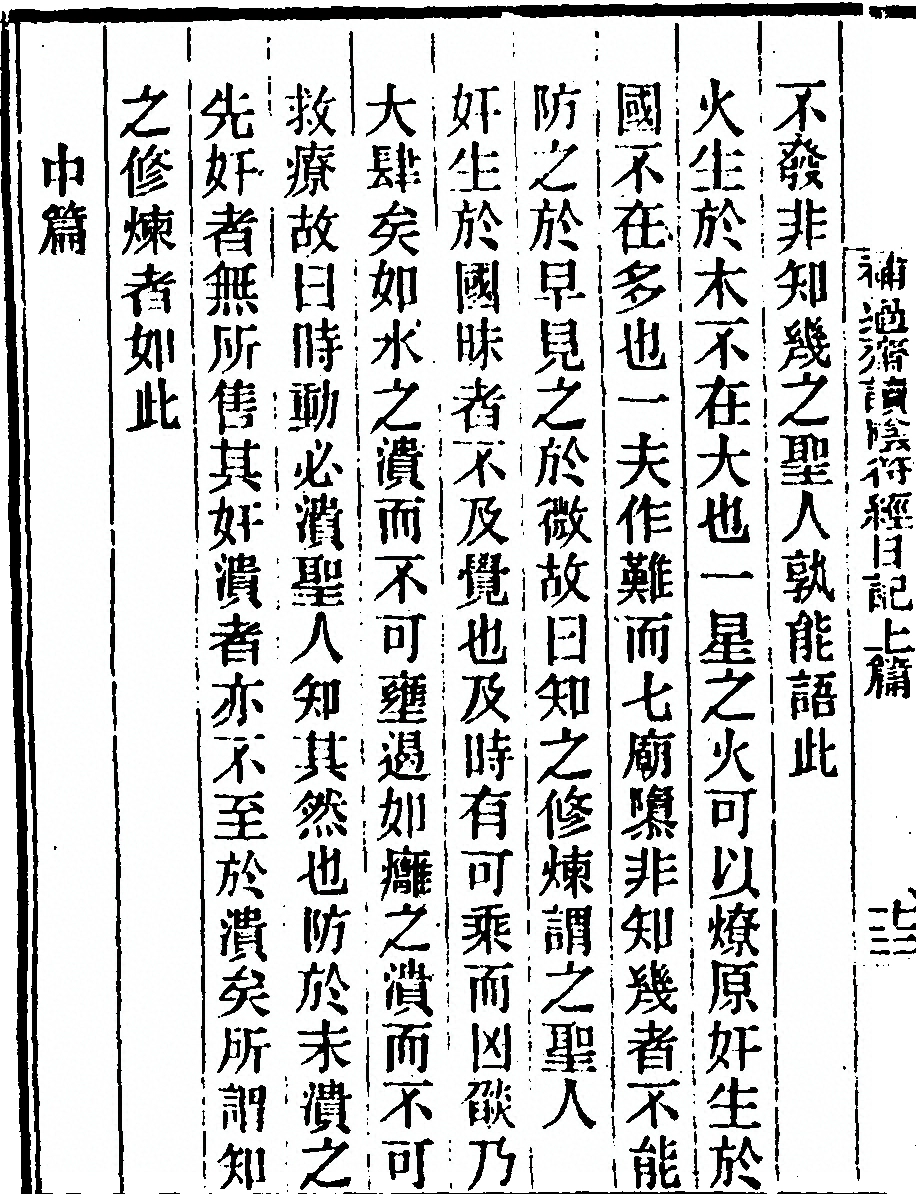 補過齋讀陰符經日記上篇
不發非知幾之聖人孰能語此
火生於木不在大也一星之火可以燎原奸生於
國不在多也一夫作難而七廟隳非知幾者不能
防之於早見之於微故曰知之修煉謂之聖人
奸生於國昧者不及覺也及時有可乘而凶燄乃
大肆矣如水之潰而不可壅遏如癰之潰而不可
救療故曰時動必潰聖人知其然也防於未潰之
先奸者無所售其奸潰者亦不至於潰矣所謂知
之修煉者如此
中篇